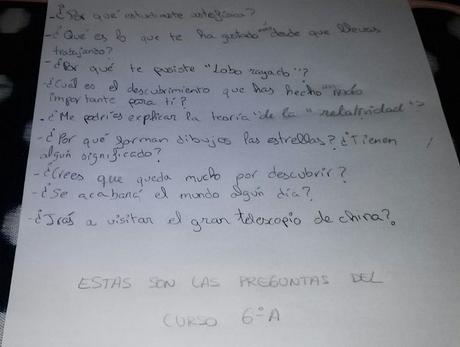 -¿Por qué estudiaste astrofísica?
-¿Qué es lo que te ha gustado más desde que llevas
trabajando?
-¿Por qué te pusiste "Lobo rayado"?
-¿Cuál es el descubrimiento que has hecho más
importante para tí?
-¿Me podrías explicar la teoría "de la "relatividad"?
-¿Por qué forman dibujos las estrellas? ¿Tienen
algún significado?
-¿Crees que queda mucho por descubrir?
-¿Se acabará el mundo algún día?
-¿Irás a visitar el gran telescopio de china?
ESTAS SON LAS PREGUNTAS DEL
CURSO 6º A